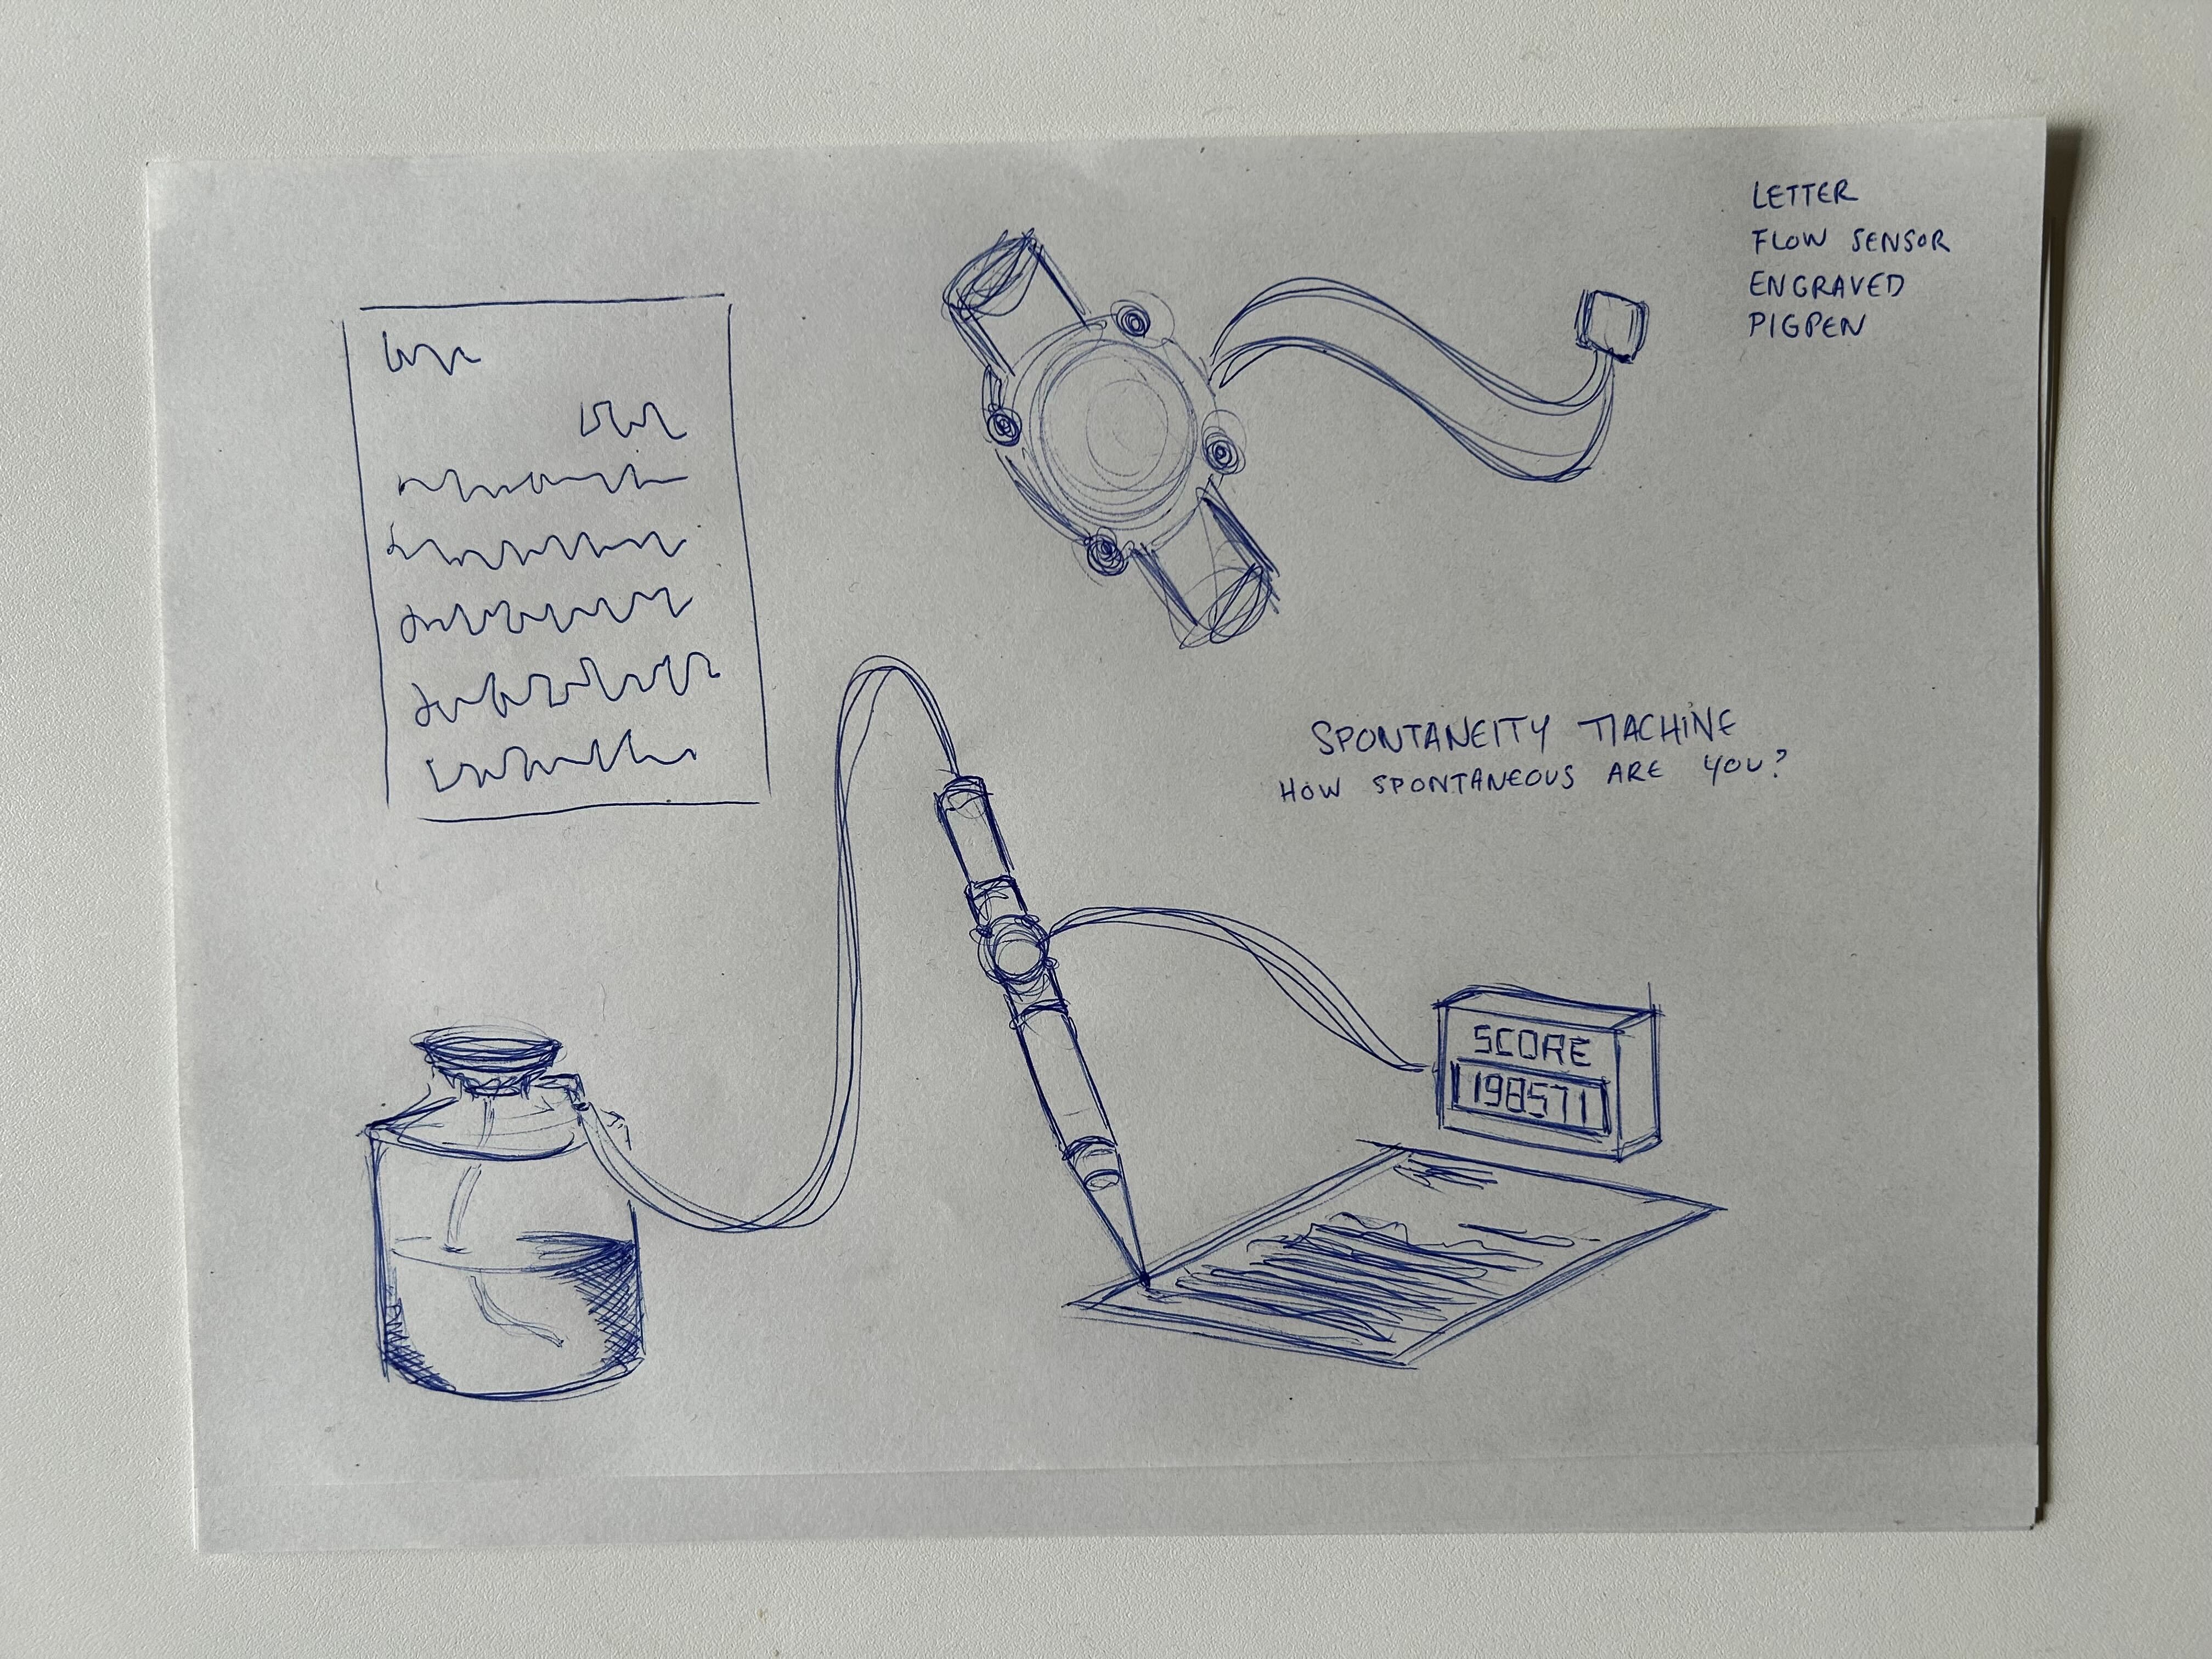 LETTER
FLOW SENSOR
ENGRAVED
PIGPEN
SPONTANEITY MACHINE
HOW SPONTANEOUS ARE YOU?
SCORE
198571